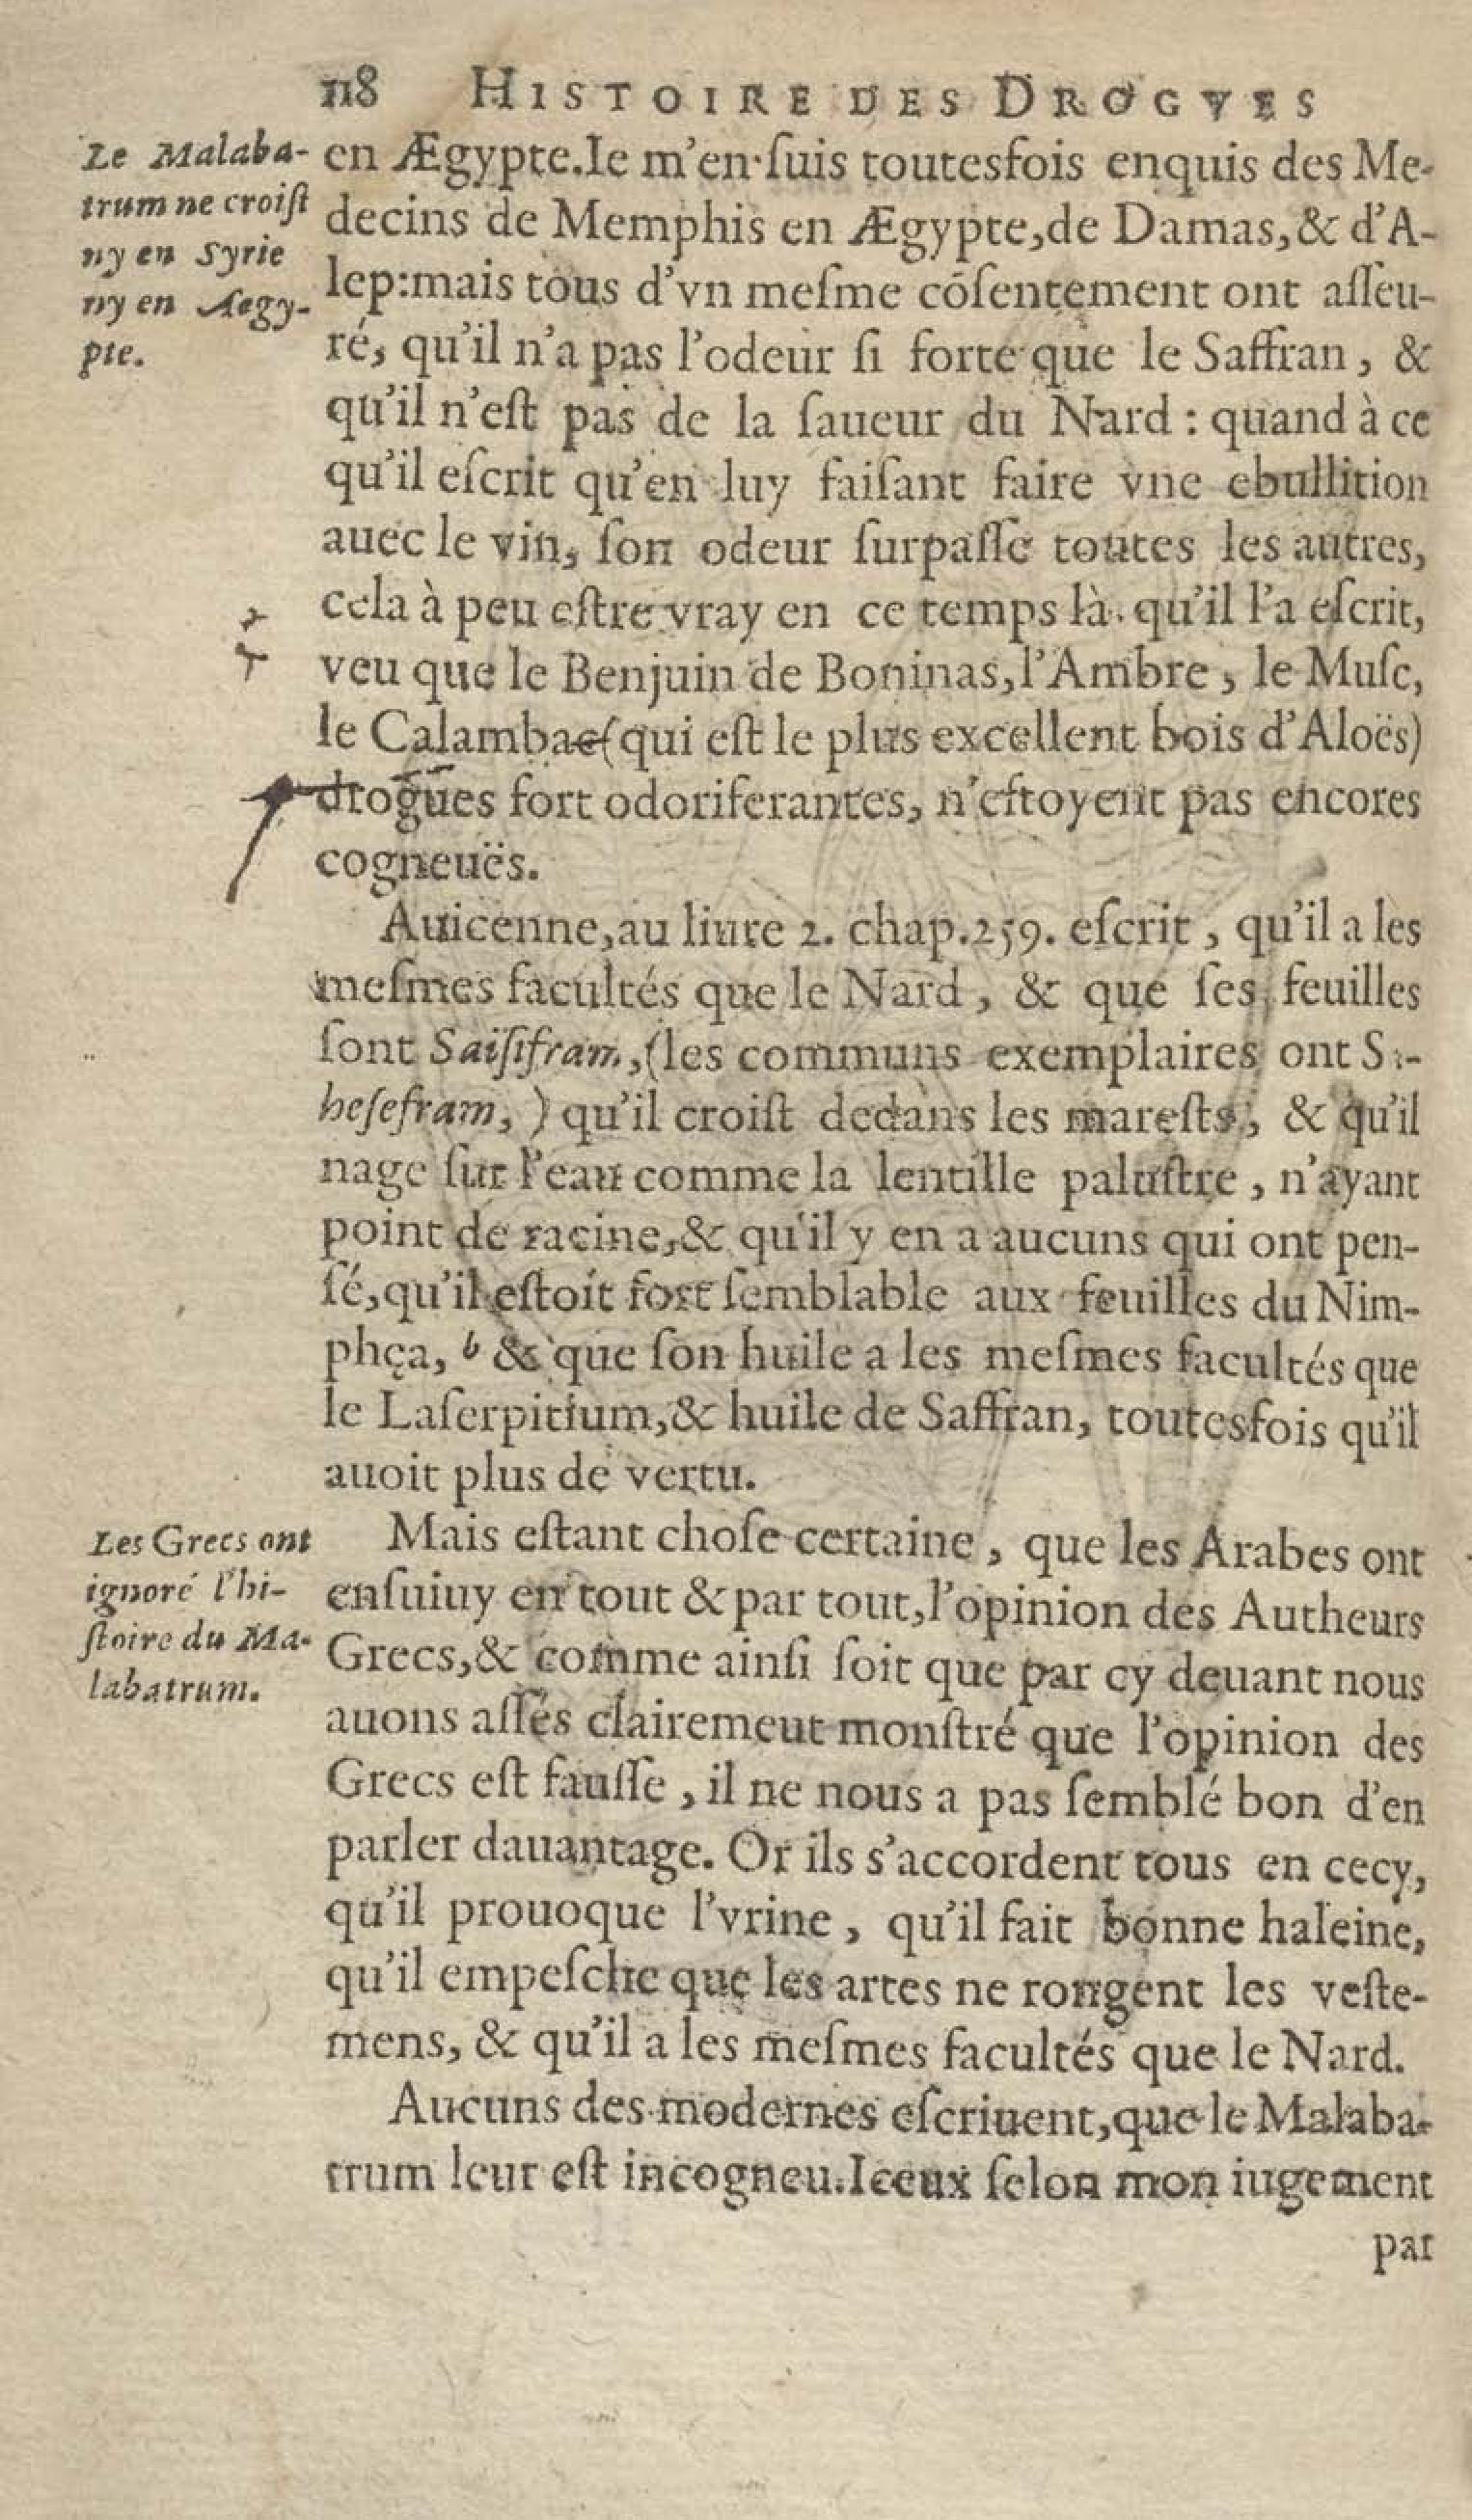 118 HISTOIRE DES DROGVES
Le Malaba-
trum ne croiſt
ny en Syrie
ny en Aegy-
pte.
en Ægypte.Ie m'en ſuis toutesfois enquis des Me-
decins de Memphis en Ægypte,de Damas,& d'A-
lep:mais tous d'vn meſme cõſentement ont aſſeu-
ré, qu'il n'a pas l'odeur ſi forte que le Saffran, &
qu'il n'eſt pas de la ſaueur du Nard : quand à ce
qu'il eſcrit qu'en luy faiſant faire vne ebullition
auec le vin, ſon odeur ſurpaſſe toutes les autres,
cela à peu eſtre vray en ce temps là qu'il l'a eſcrit,
veu que le Benjuin de Boninas,l'Ambre, le Muſc,
le Calambac(qui eſt le plus excellent bois d'Aloës)
drogues fort odoriferantes, n'eſtoyent pas encores
cogneuës.
Auicenne,au liure 2. chap.259. eſcrit, qu'il a les
meſmes facultés que le Nard, & que ſes feuilles
ſont Saïſifram,(les communs exemplaires ont S:-
heſefram,) qu'il croiſt dedans les mareſts, & qu'il
nage ſur l'eau comme la lentille paluſtre, n'ayant
point de racine,& qu'il y en a aucuns qui ont pen-
ſé,qu'il eſtoit fort ſemblable aux feuilles du Nim-
phęa, b & que ſon huile a les meſmes facultés que
le Laſerpitium,& huile de Saffran, toutesfois qu'il
auoit plus de vertu.
Les Grecs ont
ignoré l'hi-
ſtoire du Ma-
labatrum.
Mais eſtant choſe certaine, que les Arabes ont
enſuiuy en tout & par tout,l'opinion des Autheurs
Grecs,& comme ainſi ſoit que par cy deuant nous
auons aſſés clairemeut monſtré que l'opinion des
Grecs eſt fauſſe, il ne nous a pas ſemblé bon d'en
parler dauantage. Or ils s'accordent tous en cecy,
qu'il prouoque l'vrine, qu'il fait bonne haleine,
qu'il empeſche que les artes ne rongent les veſte-
mens, & qu'il a les meſmes facultés que le Nard.
Aucuns des modernes eſcriuent,que le Malaba-
trum leur eſt incogneu.Iceux ſelon mon iugement
par